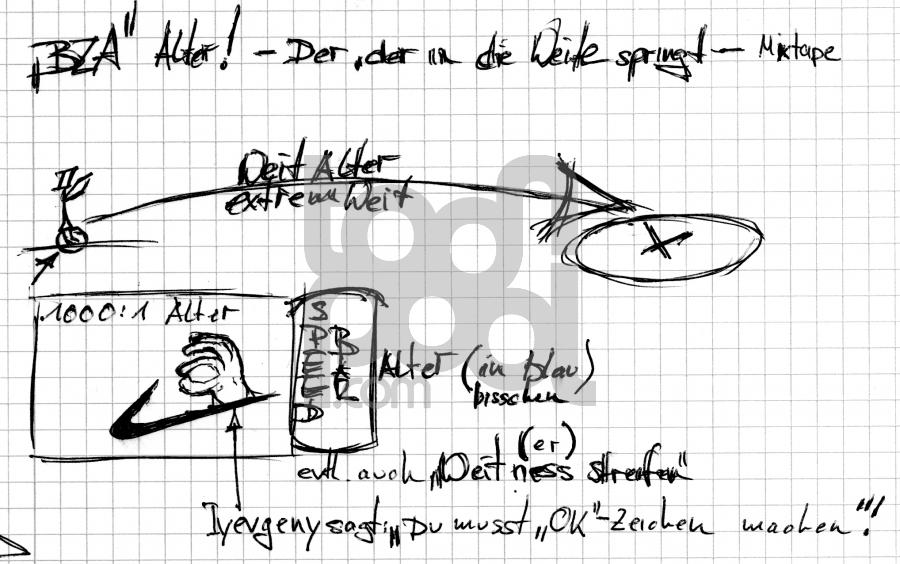 „BZA" Alter! – Der, der in die Weite springt – Mixtape
Weit Alter
extrem Weit
X
.1000:1 Alter
SPEED
BAL
Alter (in Blau)
bisschen
(er)
evtl. auch „Weitness streifen"
Iyevgeny sagt: „Du musst „OK"-Zeichen machen"!!
toodi
pool
.com